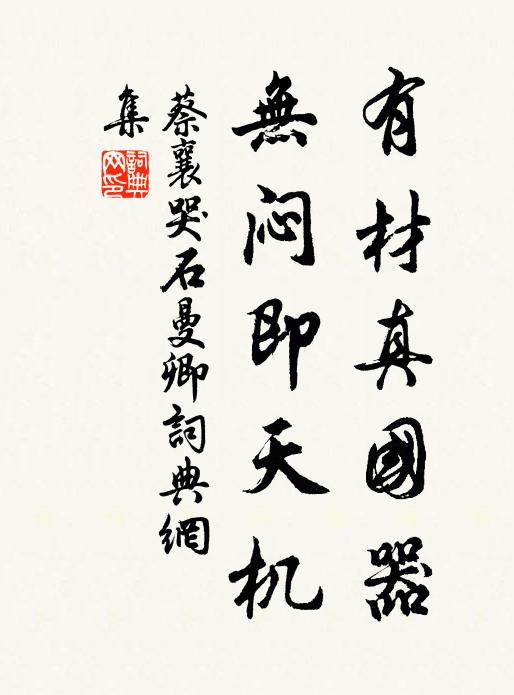 有材真國器
無闷即天机
蔡襄哭石曼卿詞典網
集
詞典
网印